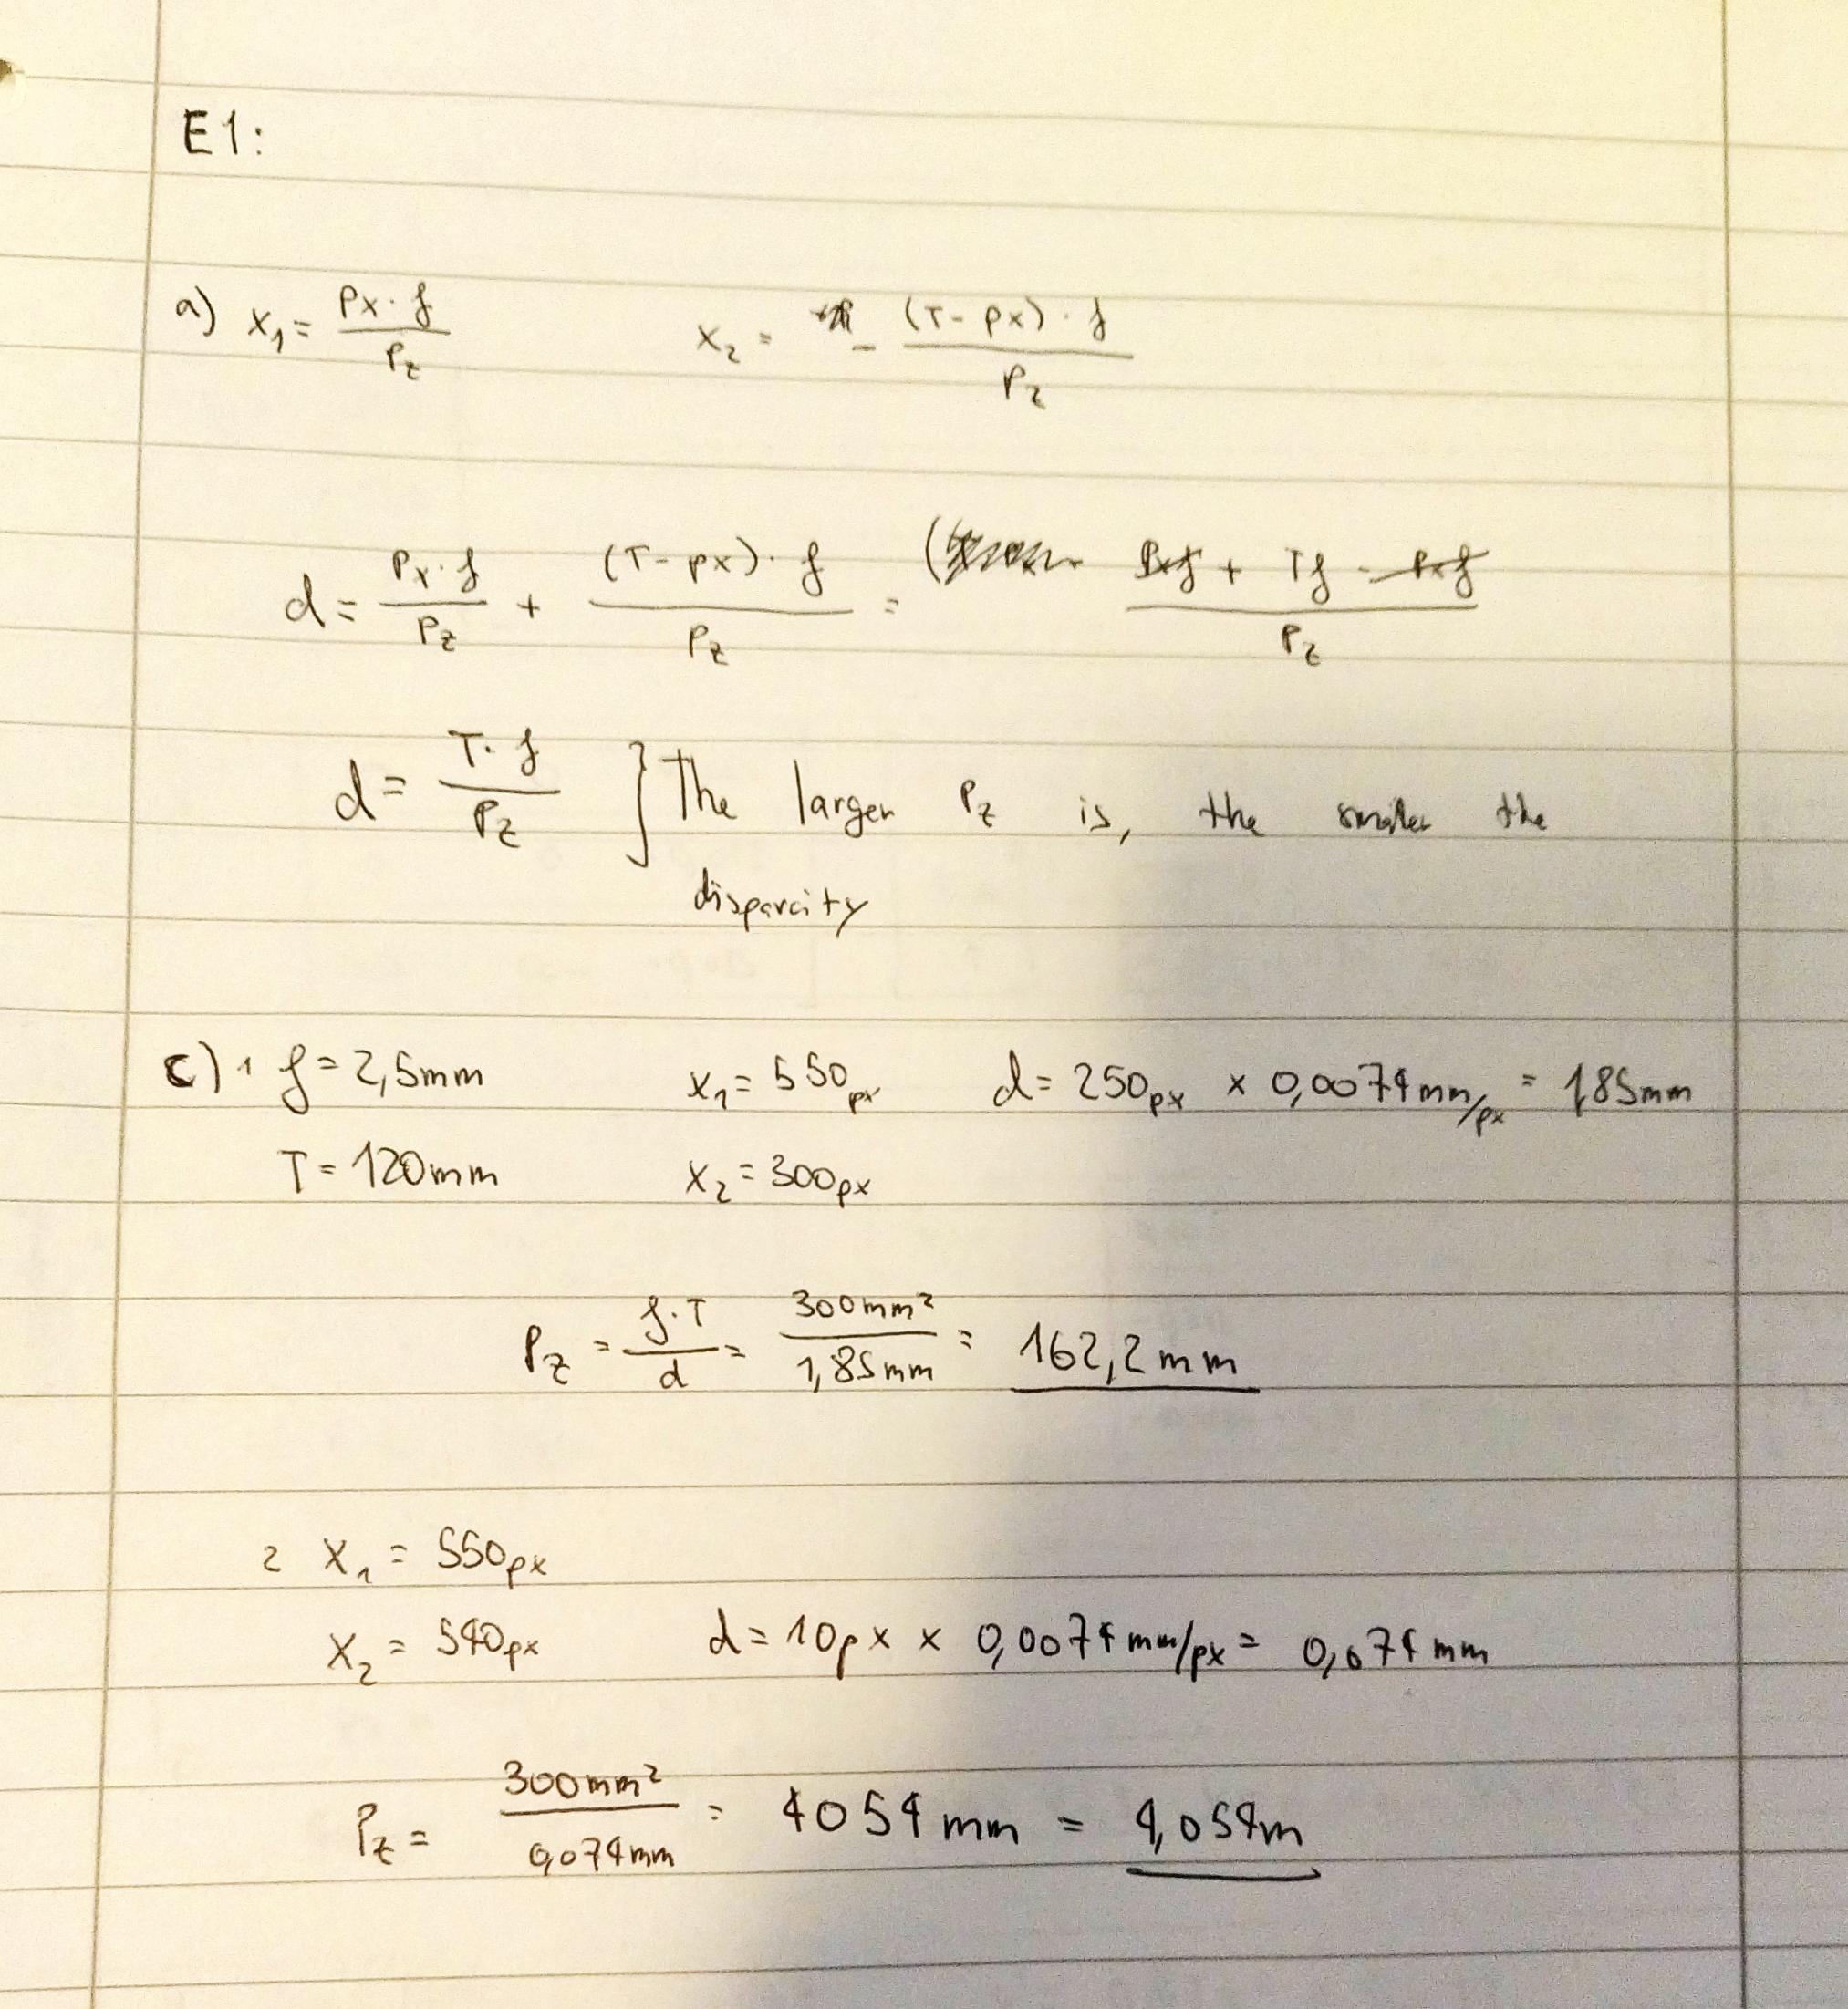 E1:
a) x₁ = (Px · f) / Pz    x₂ = - ((T - px) · f) / Pz
d = (Px · f) / Pz + ((T - px) · f) / Pz = ( (Pxf + Tf - Pxf) / Pz
d = (T · f) / Pz } The larger Pz is, the smaller the
disparity
c) 1 f = 2,5mm    x₁ = 550px    d = 250px × 0,0074mm/px = 1,85mm
T = 120mm    x₂ = 300px
Pz = (f · T) / d = 300mm² / 1,85mm = 162,2mm
2 x₁ = 550px
x₂ = 540px    d = 10px × 0,0074mm/px = 0,074mm
Pz = 300mm² / 0,074mm = 4054mm = 4,054m